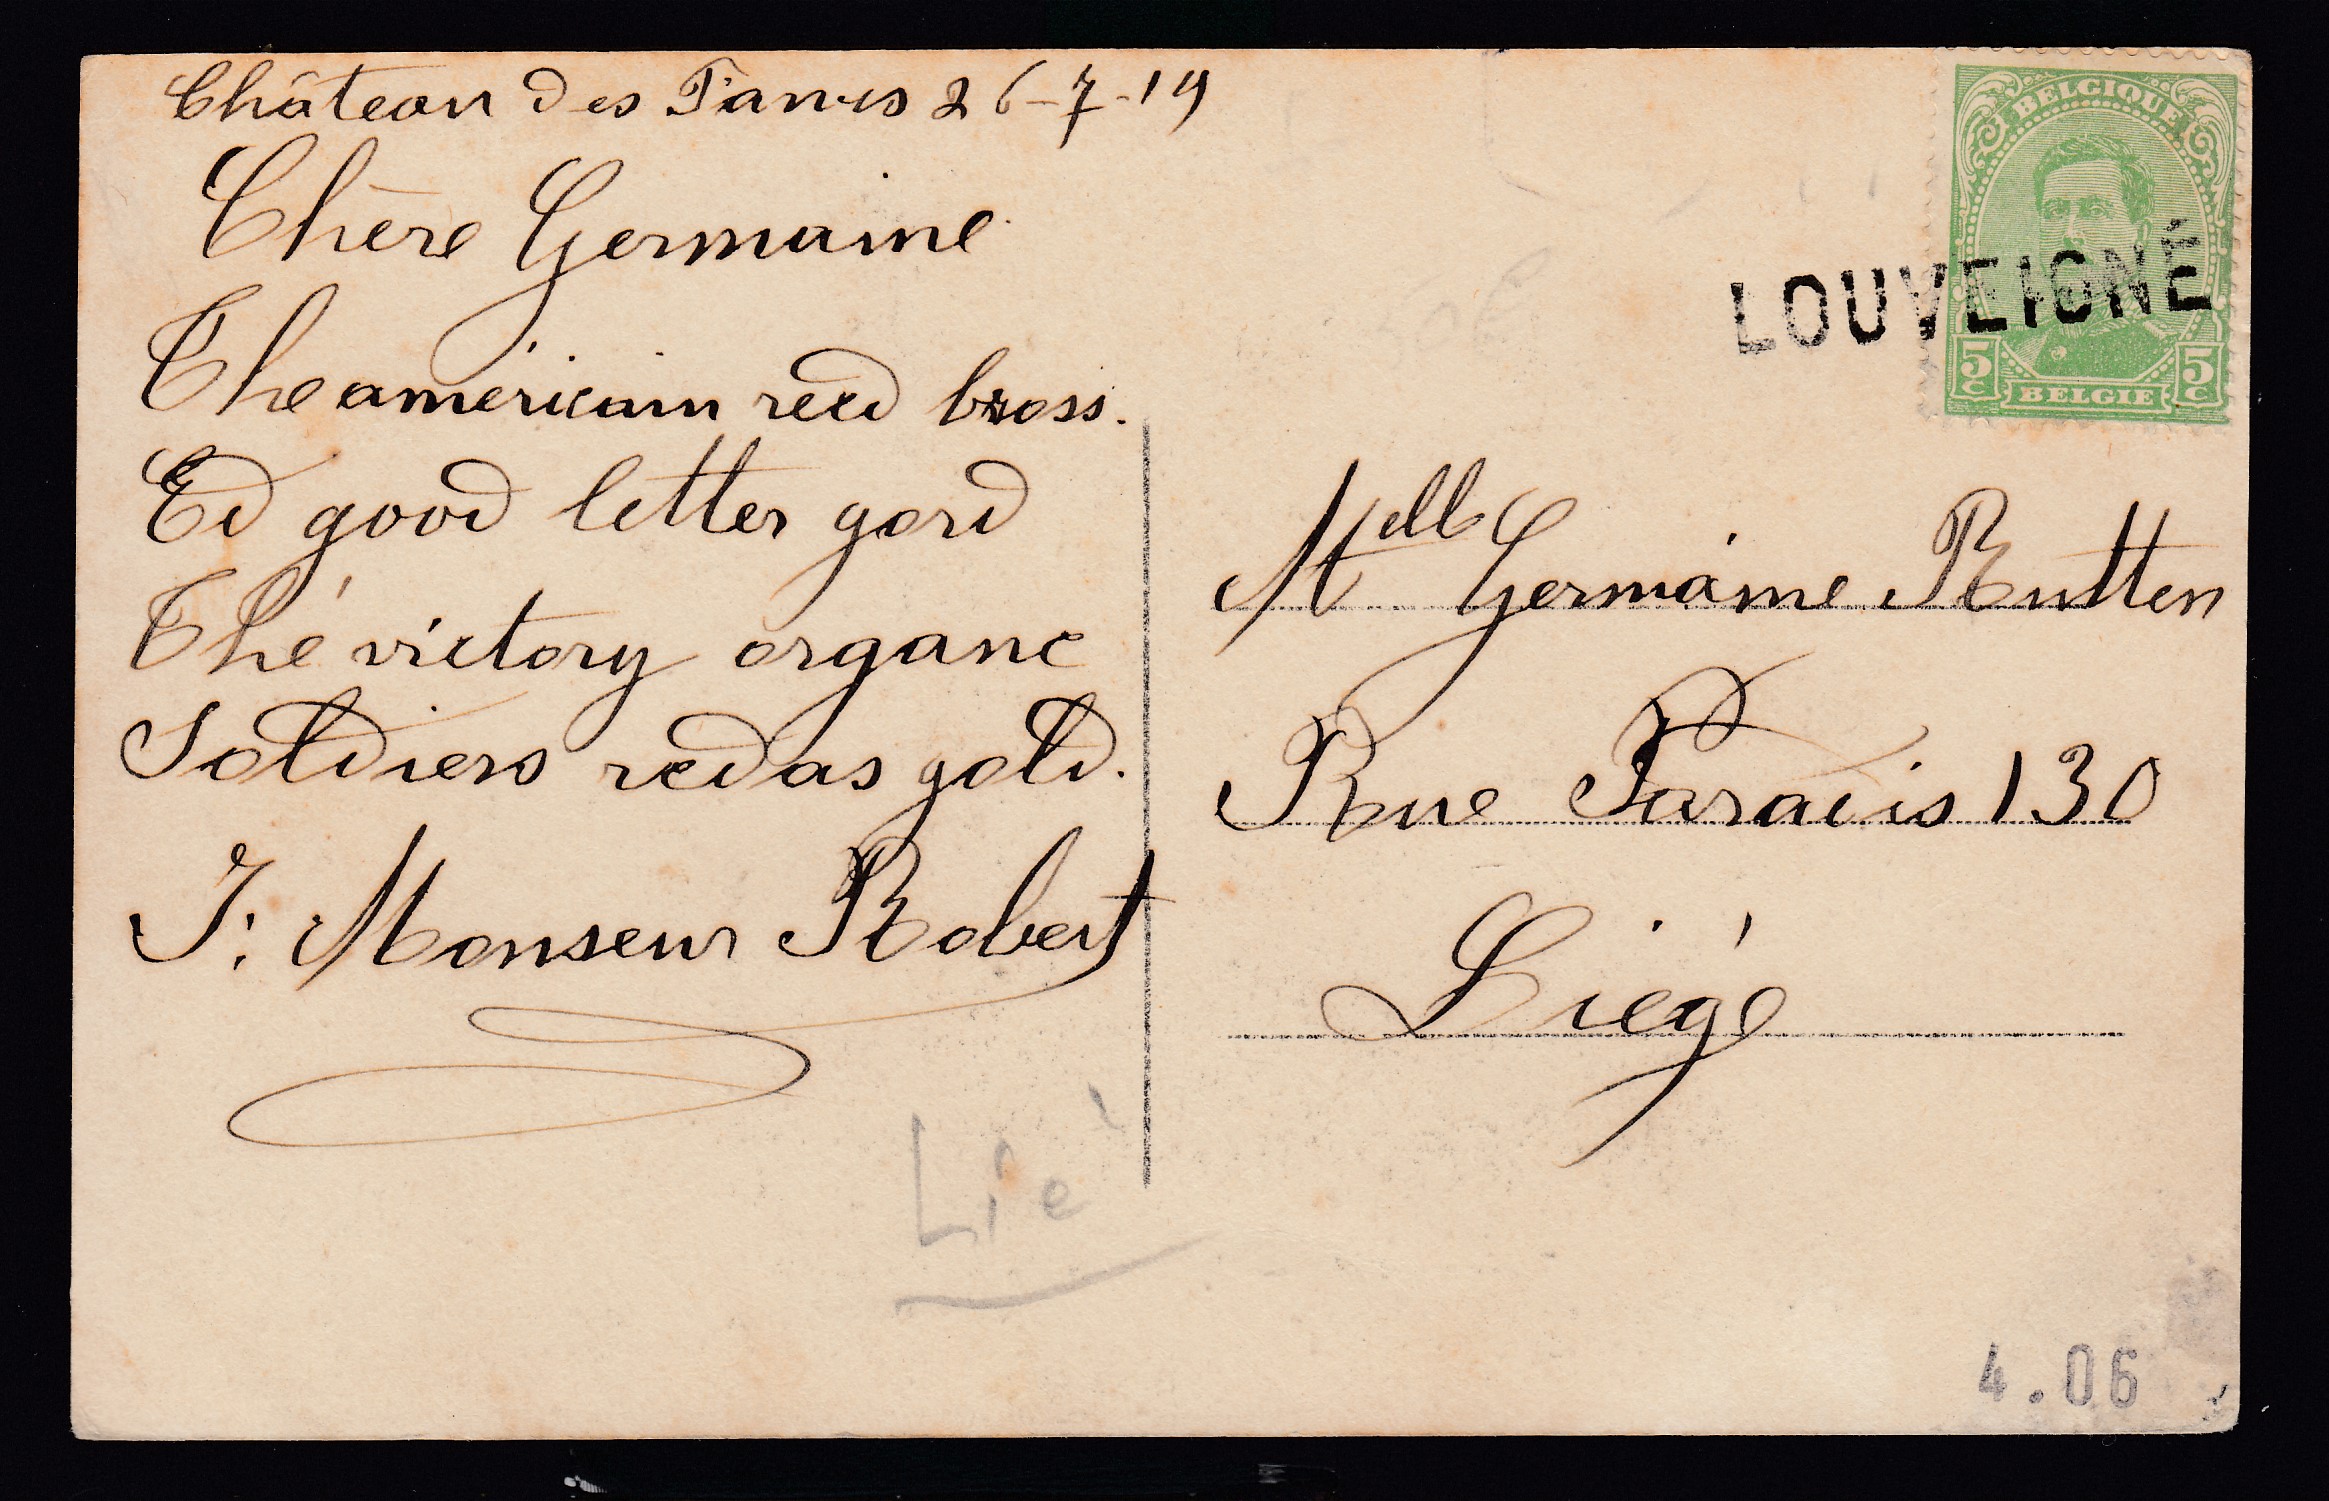 Château des Fawes 26-7-19
Chère Germaine
The américain reed bross.
Ed good letter gord
Thé victory organe
Soldiers redas gold.
J. Monseur Robert
BELGIQUE
LOUVEIGNÉ
5c BELGIE 5c
Mell Germaine Rutten
Rue Paradis 130
Liége
Lié
4.06